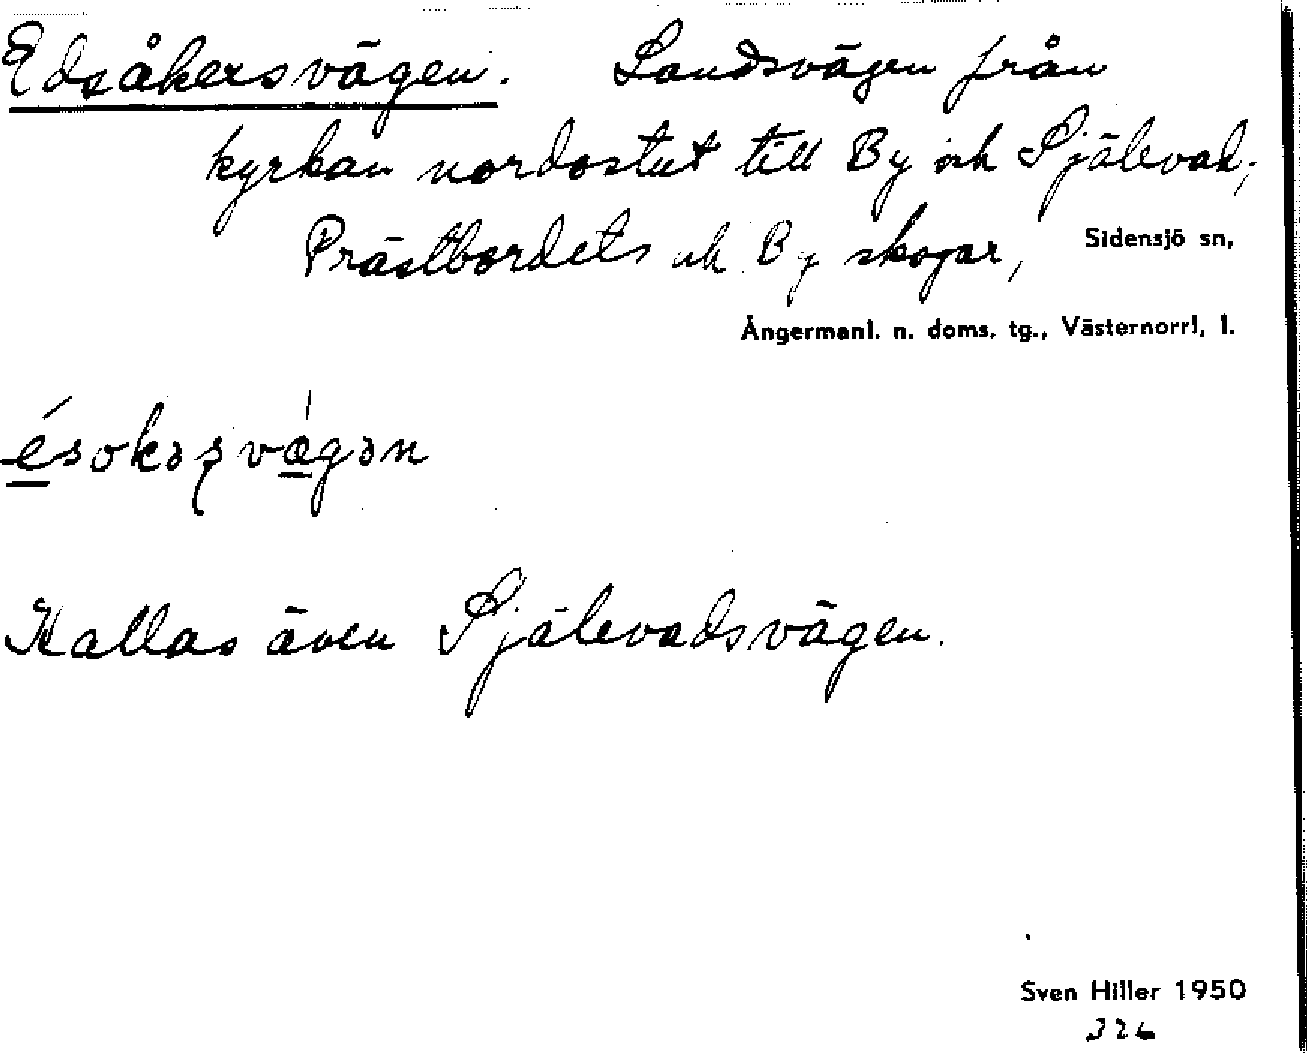 Edsåkersvägen. Landsvägen från
kyrkan nordostut till By och Själevad;
Prästbordets och By skogar, Sidensjö sn,
Ångermanl. n. doms. tg., Västernorrl. l.
ésokəṣvǽgən
Kallas även Själevadsvägen.
Sven Hiller 1950
326